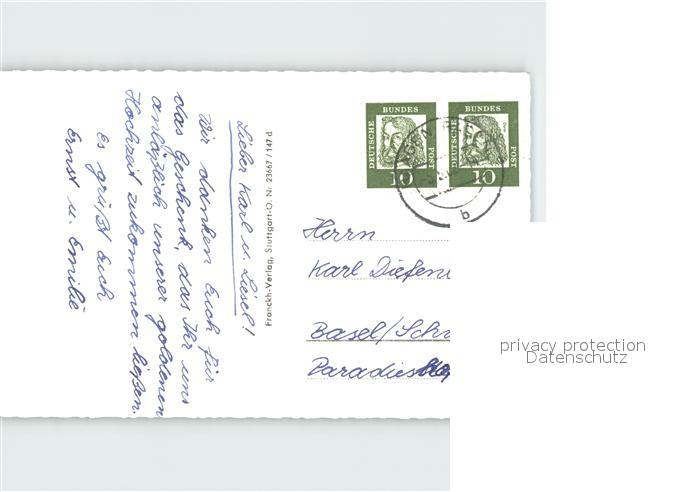 Lieber Karl u. Liesel!
Wir danken Euch für
das Geschenk, das Ihr uns
anläßlich unserer goldenen
Hochzeit zukommen ließen.
Es grüßt Euch
Ernst u. Emilie
Franckh-Verlag, Stuttgart-O. Nr. 23667 / 147 d
DEUTSCHE BUNDES POST 10
DEUTSCHE BUNDES POST 10
b
Herrn
Karl Diefen
Basel/Schw
Paradies
privacy protection
Datenschutz